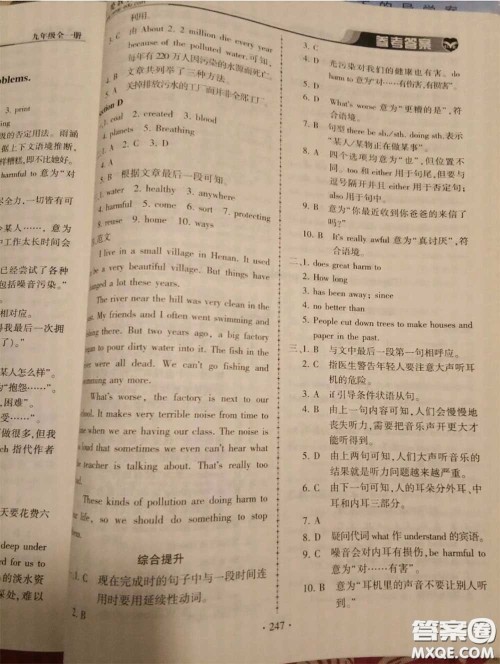 九年级全一册
oblems.
3. print
级的否定用法。雨涵
上下文语境推断，
样糟糕，即不比她好。
harmful to 意为“对
尽全力，一切皆有
某人……，意为
中工作太长时间会
已经尝试了各种
包括噪音污染。”
相对应。
得我最后一次拥
了。”
某人怎么样”。
“抱怨……”。
受……”。
做很多，但我
ch 指代作者
天要花费六
deep under
的淡水资
深处，难以
利用。
C 由 About 2 million die every year
because of the polluted water. 可知，
每年有 220 万人因污染的水源而死亡。
B 文章共列举了三种方法。
C 关掉排放污水的工厂而并非全部工厂。
ction D
1. coal 2. created 3. blood
4. planets 5. Breathing
A C D
B 根据文章最后一段可知。
1. water 2. healthy 3. anywhere
4. harmful 5. come 6. sort 7. protecting
8. reuse 9. home 10. ways
范文
I live in a small village in Henan. It used
be a very beautiful village. But things have
changed a lot these years.
The river near the hill was very clean in the
past. My friends and I often went swimming and
fishing there. But two years ago, a big factory
began to pour dirty water into it. The fish in the
river were all dead. We can't go fishing and
swimming any more.
What's worse, the factory is next to our
school. It makes very terrible noise from time to
time when we are having our class. The noise is
so loud that sometimes we even can't hear what
the teacher is talking about. That's really too
bad.
These kinds of pollution are doing harm to
our life, so we should do something to stop
them.
综合提升
1. C 现在完成时的句子中与一段时间连
用时要用延续性动词。
2. B
参考答案
3. C
4. D 光污染对我们的健康也有害。do
harm to 意为“对……有伤害,有损害”。
5. D
6. D What's worse 意为“更糟的是”，符
合语境。
7. B 句型 there be sb./sth. doing sth. 表示
“某人/某物正在做某事”。
8. A 四个选项均意为“也”，但位置不
同。too 和 either 用于句尾，但要与
逗号隔开并且 either 用于否定句；
also 用于句中。
9. B 意为“你最近收到你爸爸的来信了
吗？”
10. B It's really awful 意为“真讨厌”，符
合语境。
二、1. does great harm to
2. How long
3. has been away; since
4. no better than
5. People cut down trees to make houses and
paper in the past.
三、1. B 与文中最后一段第一句相呼应。
2. C 指医生警告年轻人要注意大声听耳
机的危险。
3. A if 引导条件状语从句。
4. B 由上一句内容可知，人们会慢慢地
丧失听力，需要把音乐声开更大才
能听得到。
5. D 由上两句可知，人们大声听音乐的
结果就是听力问题越来越严重。
6. C 由下一句可知，人的耳朵分外耳、中
耳和内耳三部分。
7. A
8. D 疑问代词 what 作 understand 的宾语。
9. C 噪音会对内耳有损伤，be harmful to
意为“对……有害”。
10. B 意为“耳机里的声音不要让别人听
到。”
· 247 ·
答案圈
MXQE.COM